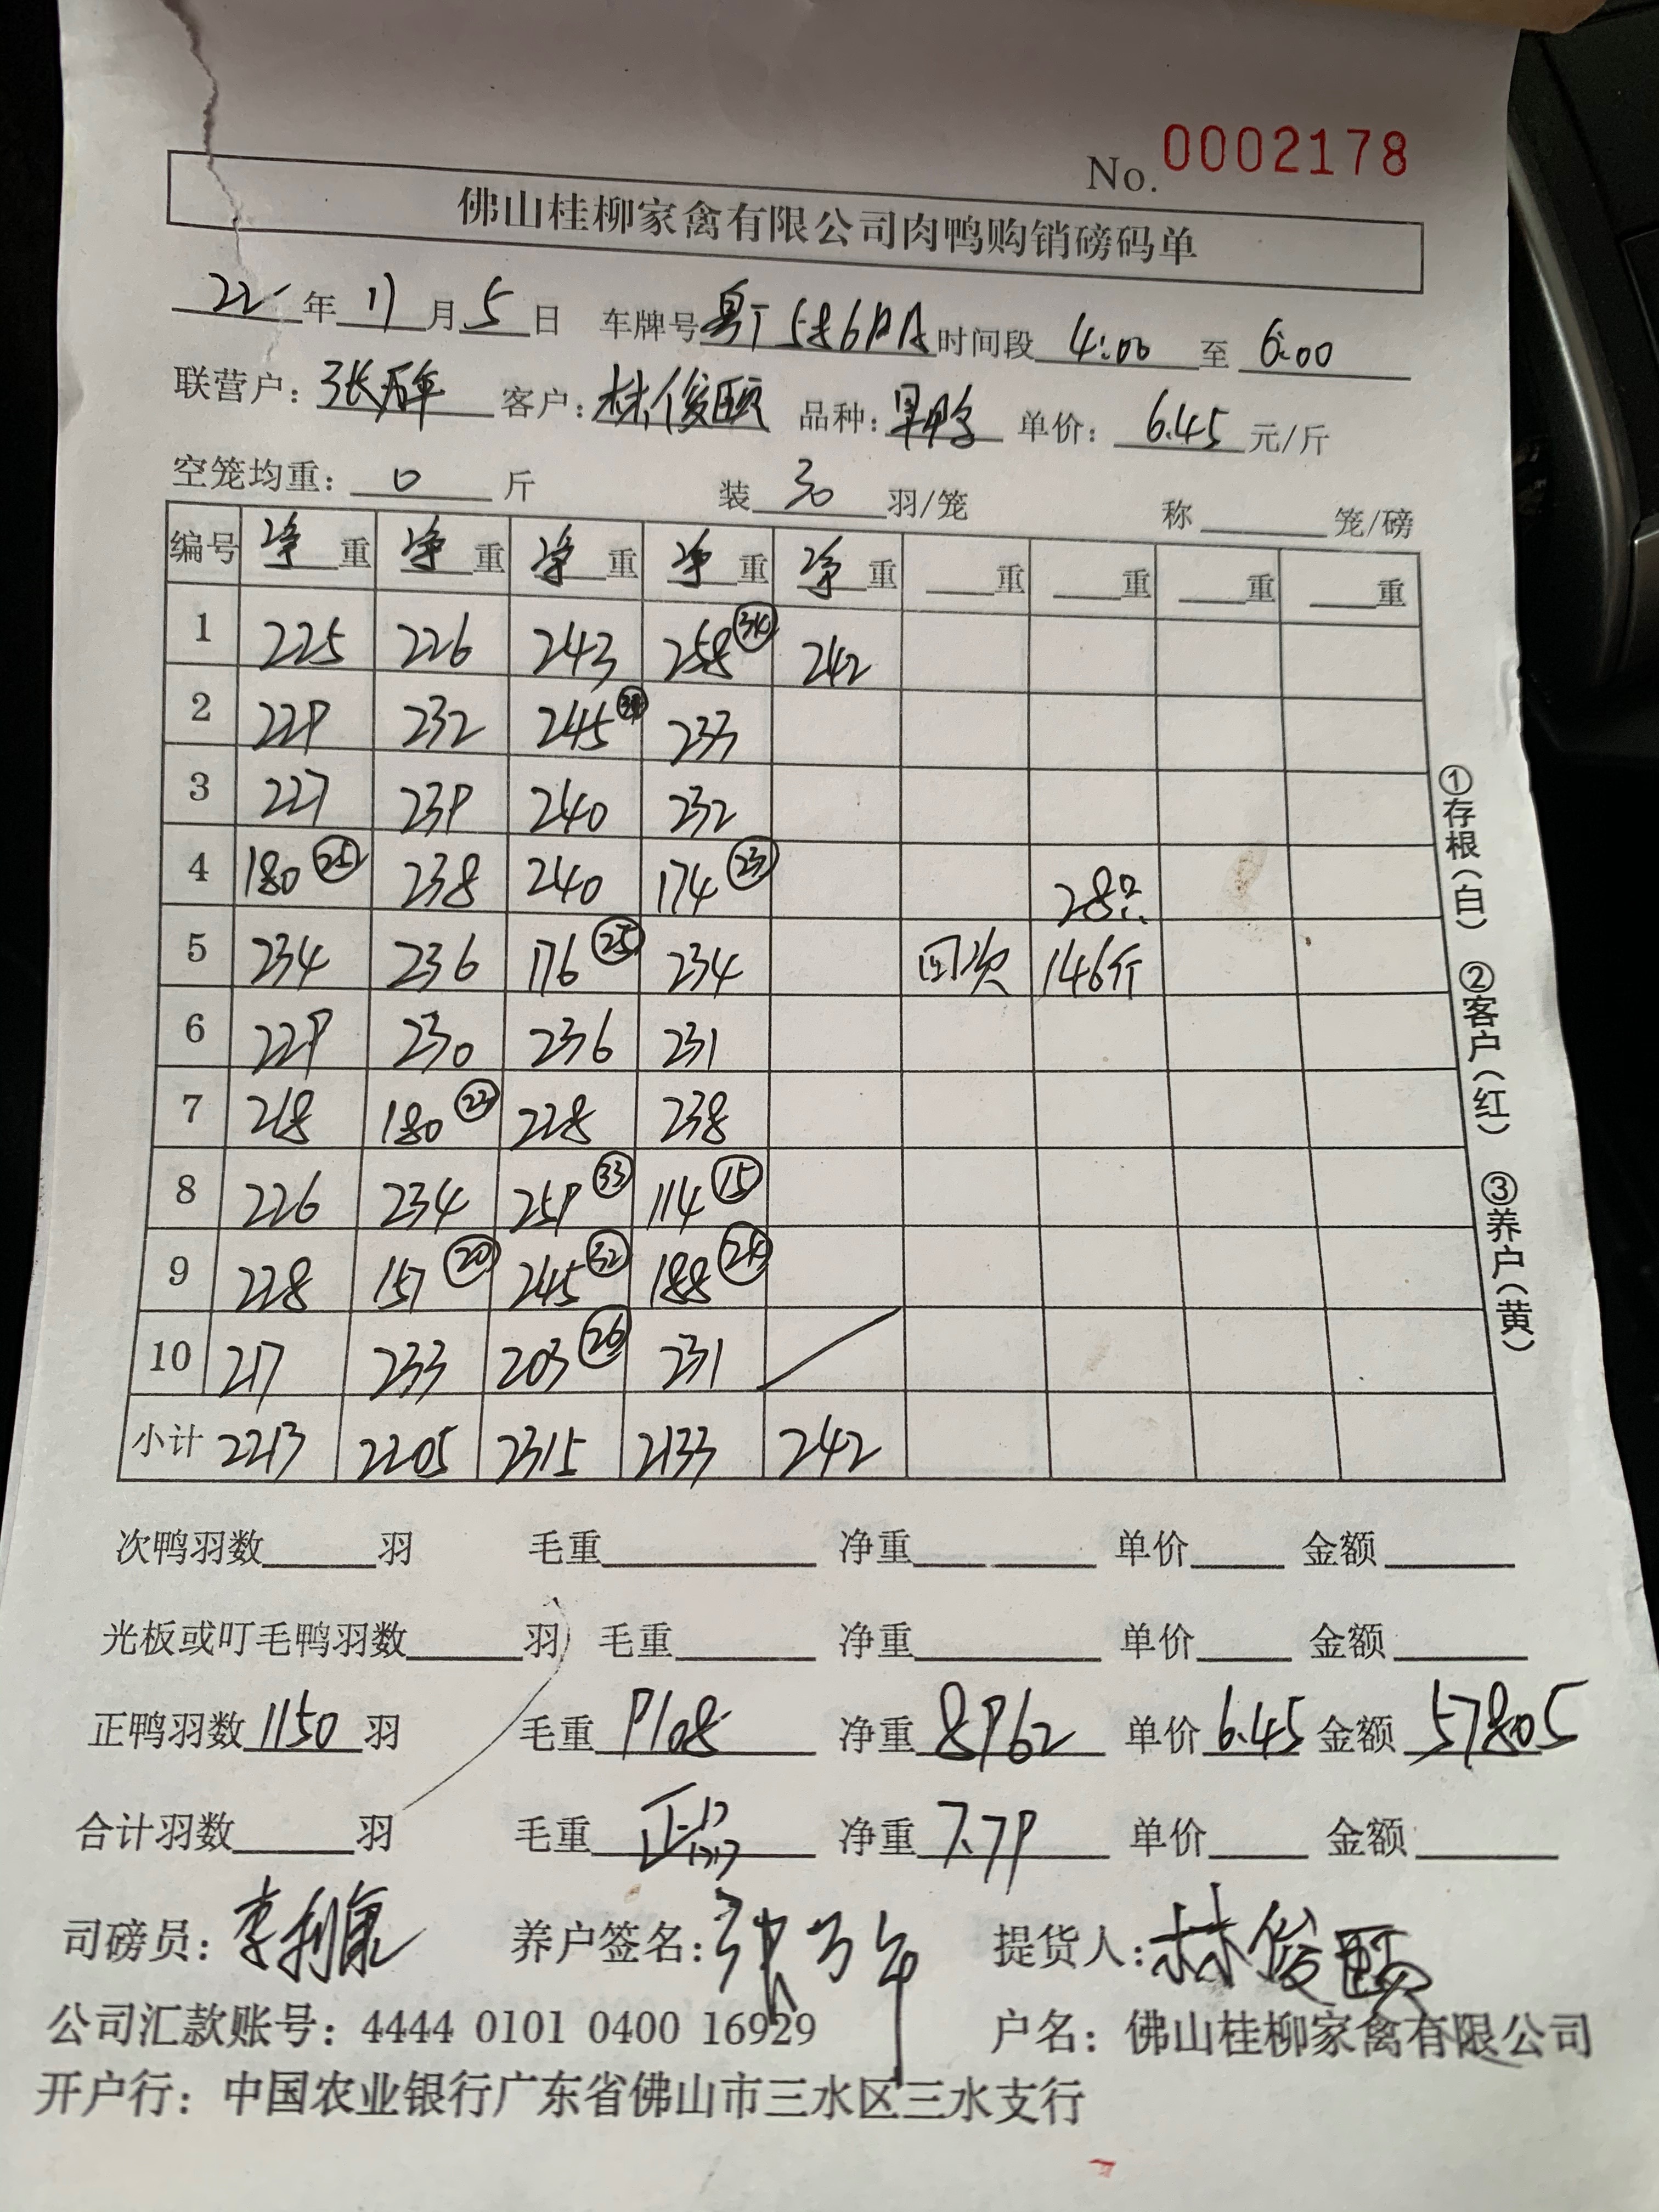 No. 0002178
佛山桂柳家禽有限公司肉鸭购销磅码单
22年11月5日 车牌号粤T 时间段4:00至6:00
联营户：张万年 客户：林俊颐 品种： 单价：6.45元/斤
空笼均重：0斤 装30羽/笼 称 笼/磅
编号 净重 净重 净重 净重 净重 重 重 重 重
1 225 226 243 258 242
2 229 232 245 233
3 227 239 240 232
4 180 (25) 238 240 174 (23) 28只
5 234 236 176 (25) 234 回次 146斤
6 229 230 236 231
7 218 180 (23) 228 238
8 226 234 259 (33) 114 (15)
9 228 157 (20) 245 (32) 188 (24)
10 217 233 203 (26) 231
小计 2213 2205 2315 2133 242
次鸭羽数 羽 毛重 净重 单价 金额
光板或叮毛鸭羽数 羽 毛重 净重 单价 金额
正鸭羽数1150羽 毛重9108 净重8962 单价6.45 金额57805
合计羽数 羽 毛重 净重7.79 单价 金额
司磅员：李利康 养户签名：张万年 提货人：林俊颐
公司汇款账号：4444 0101 0400 16929 户名：佛山桂柳家禽有限公司
开户行：中国农业银行广东省佛山市三水区三水支行
①存根（白） ②客户（红） ③养户（黄）